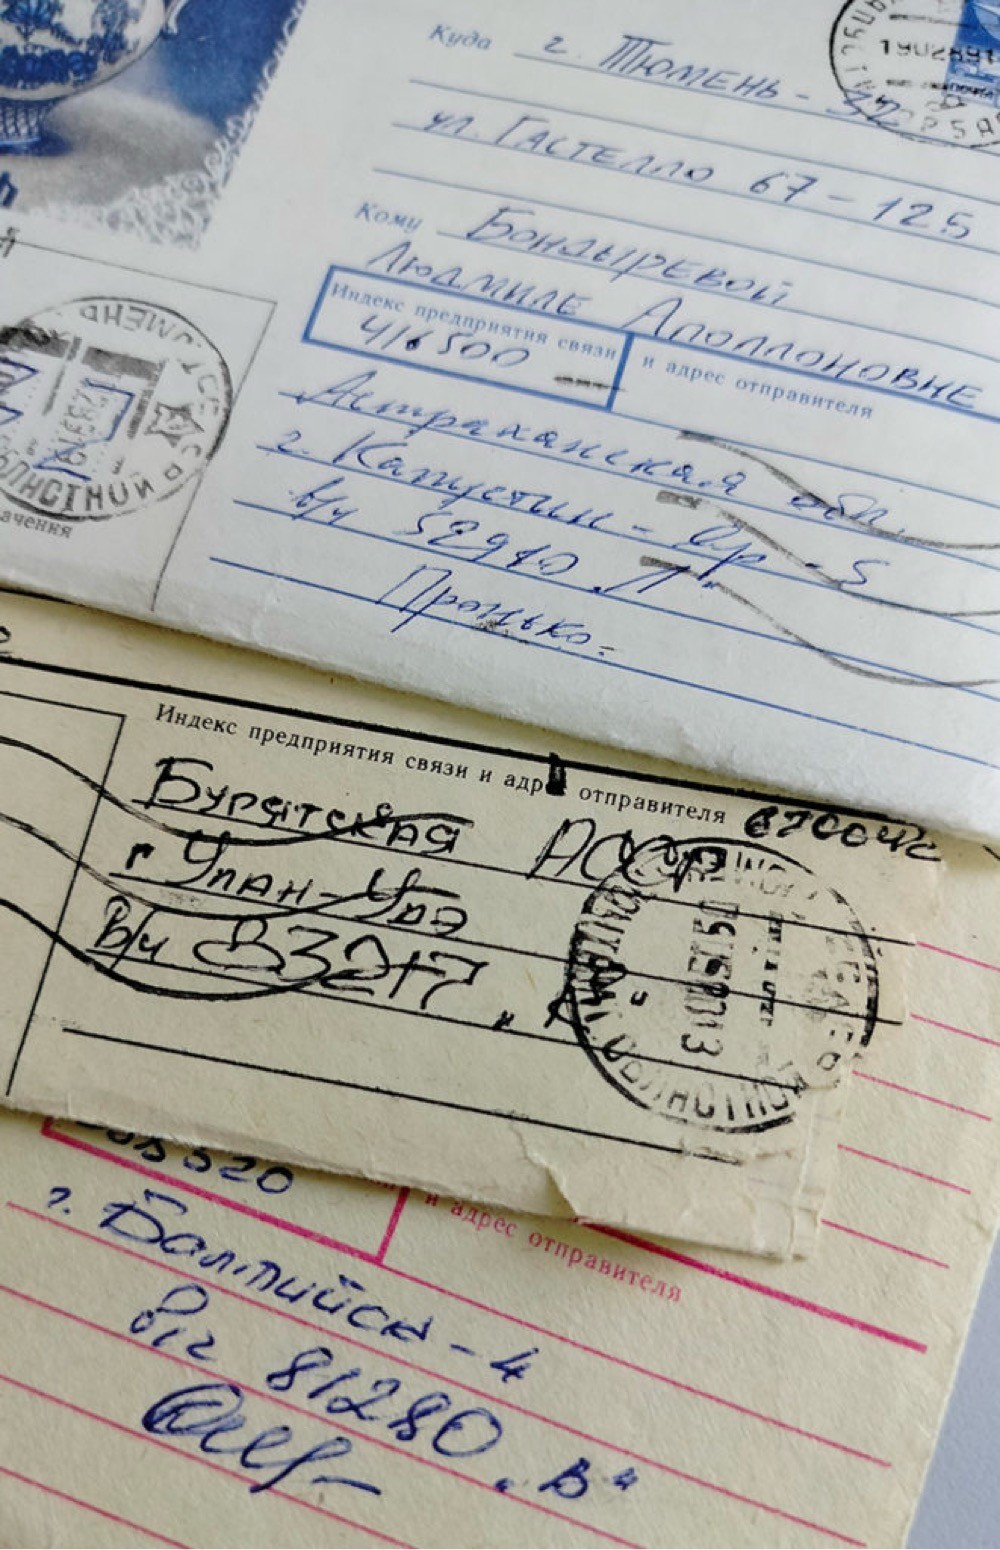 Куда г. Тюмень -
ул. Гастелло 67-125
Кому Бондыревой
Людмиле Аполлоновне
Индекс предприятия связи
и адрес отправителя
416500
Астраханская обл.
г. Капустин-Яр - 5
в/ч 52910 "Л"
Пронько.
ачения
Индекс предприятия связи и адр отправителя 670042
Бурятская АССР
г Улан-Удэ
В/ч 83217 "А
520
и адрес отправителя
г. Балтийск-4
в/ч 81280 "В"